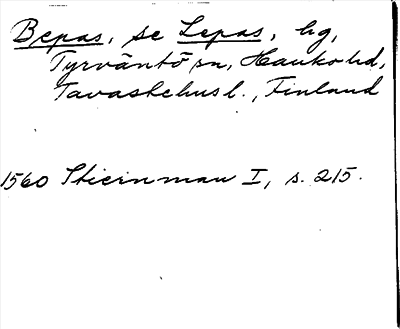 Bepas, se Lepas, hg,
Tyrväntö sn, Hauko hd,
Tavastehus l., Finland
1560 Stiernman I, s. 215.